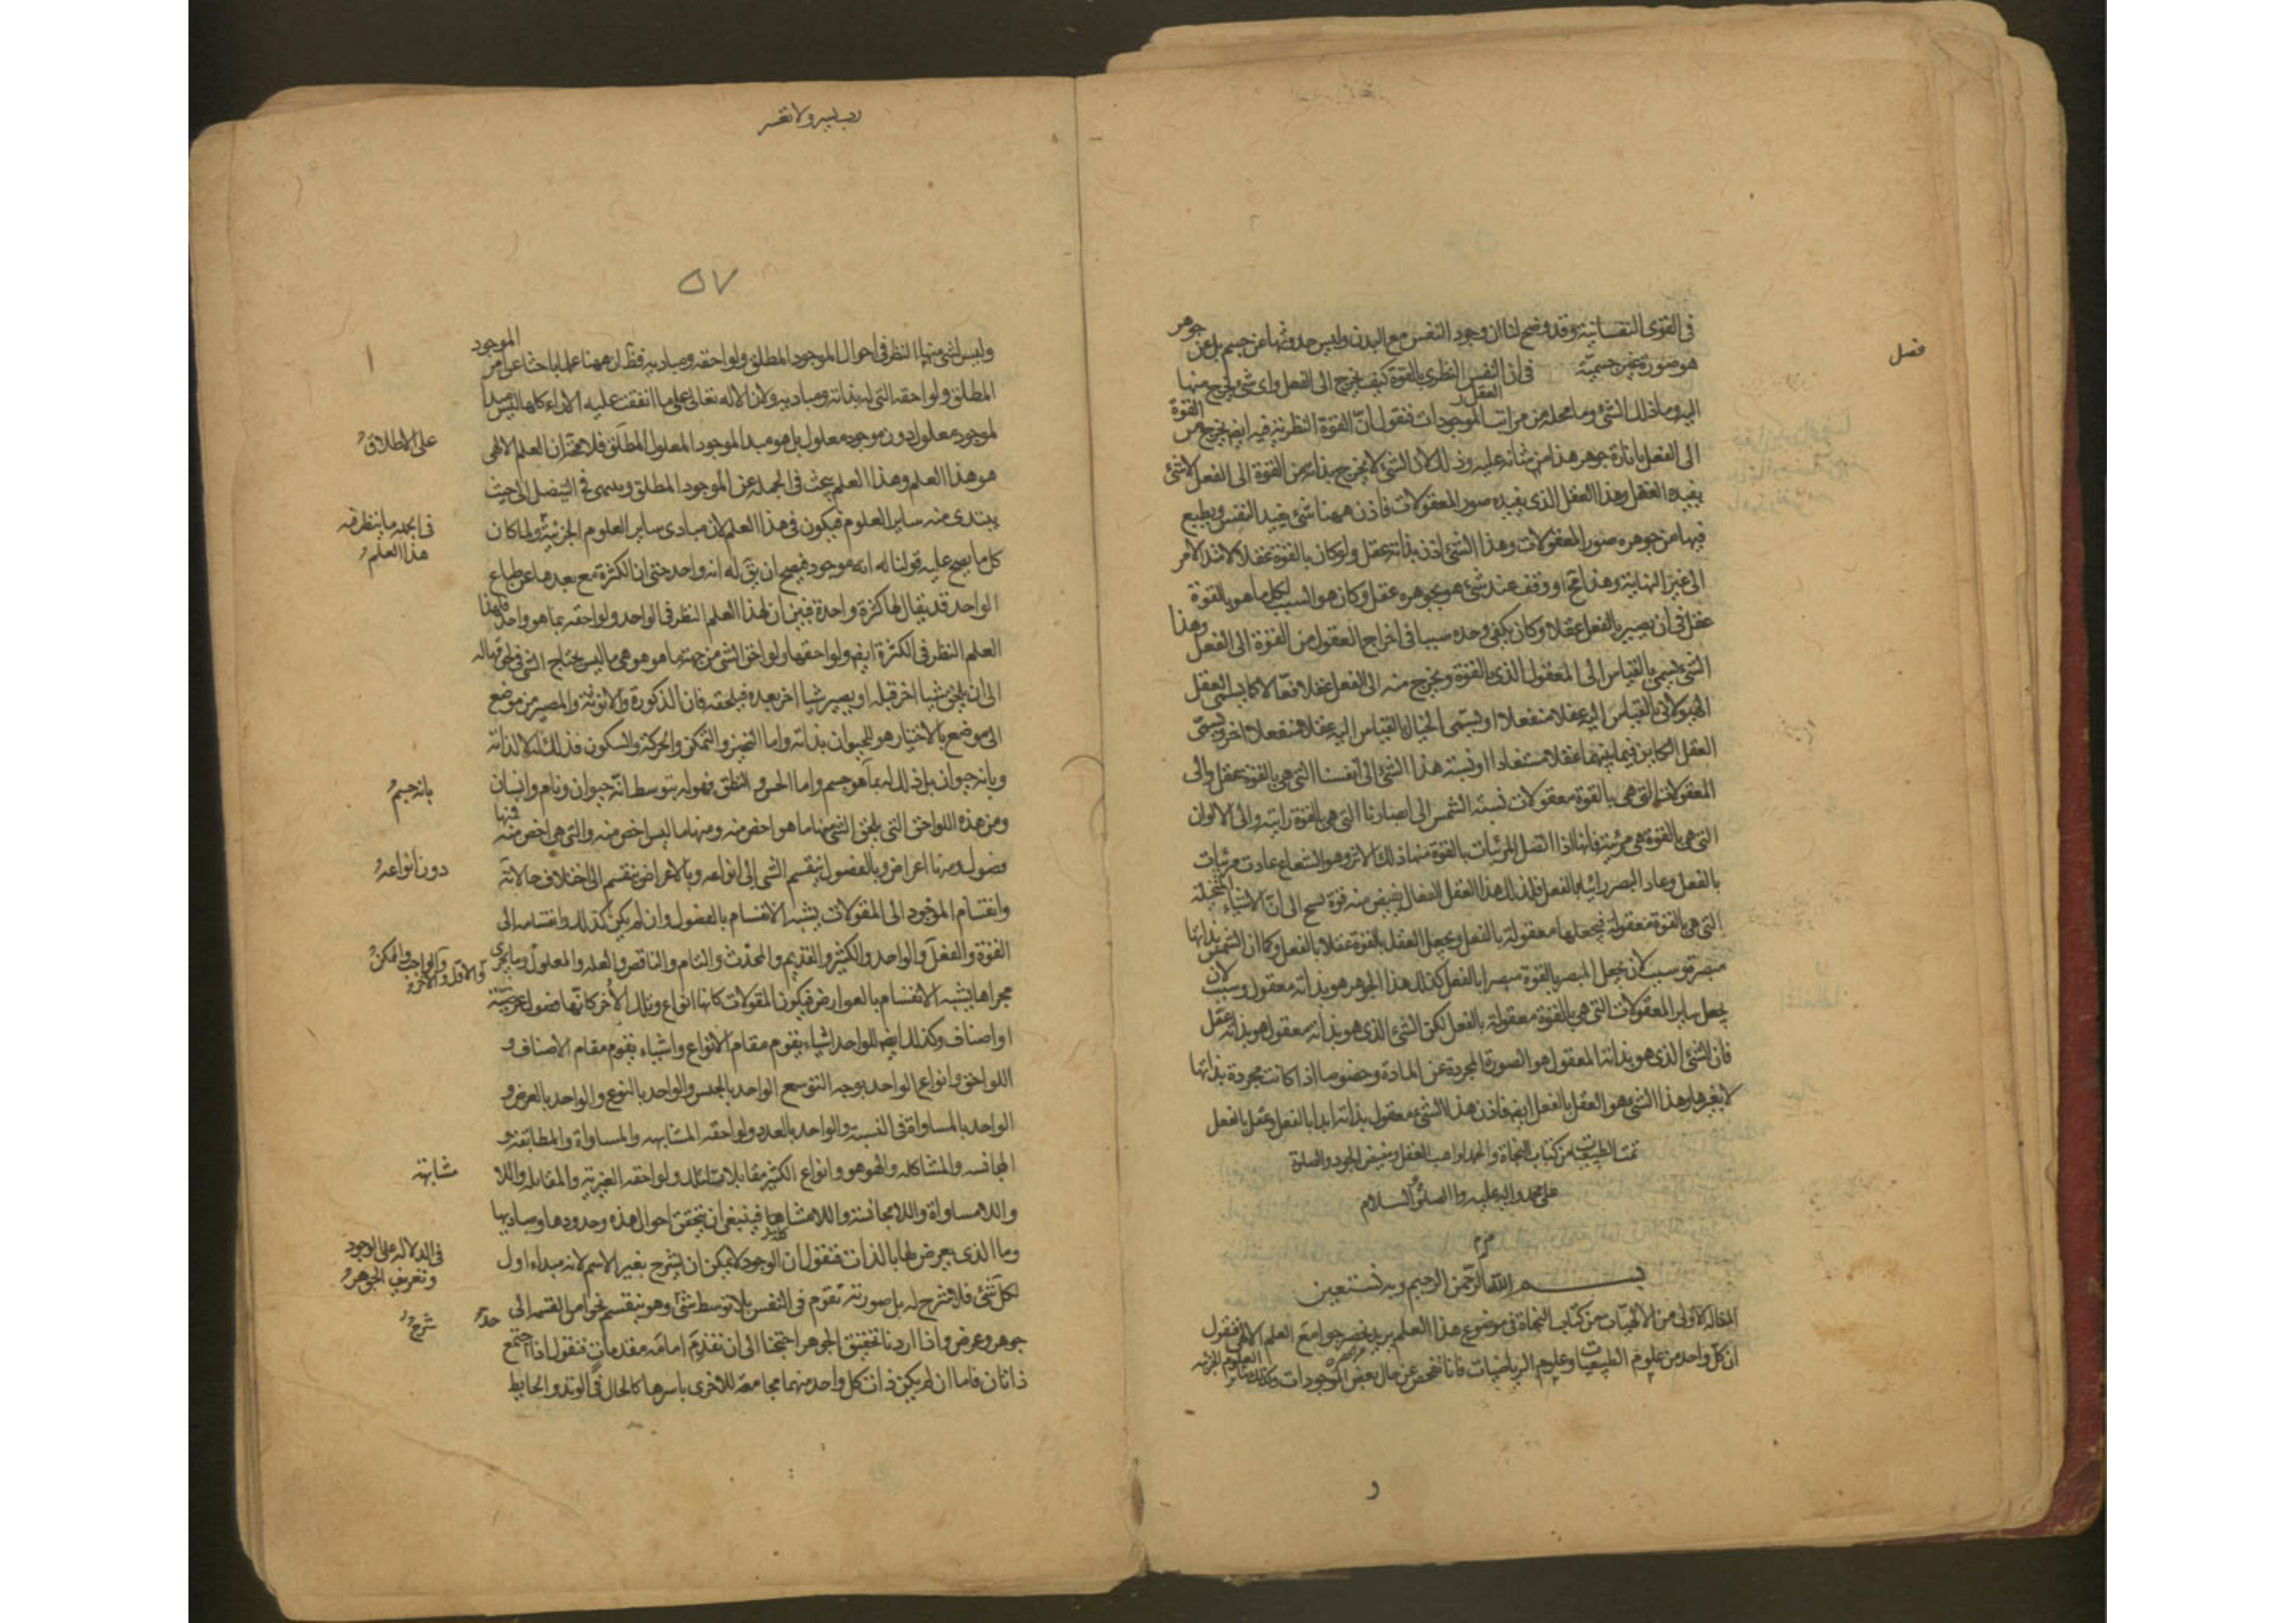 فصل
في القوى النفسانية وقد وضح لنا ان وجود النفس مع البدن وليس حدوثها عن جسم بل عن جوهر
هو صورة غير جسمية في ان النفس النظري بالقوة كيف يخرج الى الفعل واي شي يخرج منها
العقل
اليه وما ذلك الشئ وما محله من مراتب الموجودات فنقول ان القوة النظرية فيه ايضا يخرج من القوة
الى الفعل بانارة جوهر هذا من شانه عليه وذلك لان الشئ لا يخرج بذاته من القوة الى الفعل الا بشئ
يفيده الفعل وهذا العقل الذي يفيده صور المعقولات فاذن ههنا شئ يفيد النفس ويطبع
فيها من جوهره صور المعقولات وهذا الشئ اذن بذاته عقل ولو كان بالقوة عقلا لامتد الامر
الى غير النهاية وهذا مح او وقف عند شئ هو بجوهره عقل وكان هو السبب لكل ما هو بالقوة
عقل في ان يصير بالفعل عقلا وكان يكفي وحده سببا في اخراج العقول من القوة الى الفعل وهذا
الشئ يسمى بالقياس الى المعقول الذي بالقوة ويخرج منه الى الفعل عقلا فعالا كما يسمى العقل
الهيولاني بالقياس اليه عقلا منفعلا او يسمى الخيال بالقياس اليه عقلا منفعلا اخر ويسمى
العقل الكاين فيما بينهما عقلا مستفادا ونسبة هذا الشئ الى انفسنا التي هي بالقوة عقل والى
المعقولات التي هي بالقوة معقولات نسبة الشمس الى ابصارنا التي هي بالقوة رايئة والى الالوان
التي هي بالقوة هي مرئية فانها اذا اتصل المرئيات بالقوة منها ذلك الاثر وهو الشعاع عادت مرئيات
بالفعل وعاد البصر رائيا بالفعل فلذلك هذا العقل الفعال يفيض منه قوة تسح الى ان الاشياء المتخيلة
التي هي بالقوة معقولة فيجعلها معقولة بالفعل ويجعل العقل بالقوة عقلا بالفعل وكما ان الشمس بذاتها
مبصرة وسبب لان يجعل المبصر بالقوة مبصرا بالفعل كذلك هذا الجوهر هو بذاته معقول وسبب لان
يجعل ساير المعقولات التي هي بالقوة معقولة بالفعل لكن الشئ الذي هو بذاته معقول هو بذاته عقل
فان الشئ الذي هو بذاته المعقول هو الصورة المجردة عن المادة وخصوصا اذا كانت مجردة بذاتها
لا بغيرها وهذا الشئ هو العقل بالفعل ايضا فاذن هذا الشئ معقول بذاته ابدا بالفعل وعقل بالفعل
تمت الطبيعيات من كتاب النجاة والحمد لواهب العقل ومفيض الجود والصلوة
على محمد واله عليه والصلوة السلام
بسم الله الرحمن الرحيم وبه نستعين
المقالة الاولى من الالهيات من كتاب النجاة في موضوع هذا العلم نريد نحصر جوامع العلم الالهي فنقول
ان كل واحد من علوم الطبيعيات وعلوم الرياضيات فانما يفحص عن حال بعض الموجودات وكذلك سائر العلوم الجزئية
و
رب يسر ولا تعسر
٥٧
وليس لشئ منها النظر في احوال الموجود المطلق ولواحقه ومباديه فظ ان ههنا علما باحثا عن امر الموجود
المطلق ولواحقه التي له بذاته ومباديه ولان الاله تعالى على ما اتفقت عليه الاراء كلها ليس مبدا
لموجود معلول دون موجود معلول بل هو مبدا الموجود المعلول المطلق فلا محة ان العلم الالهي
على الاطلاق
هو هذا العلم وهذا العلم يبحث في الجملة عن الموجود المطلق وينتهى في التفصيل الى حيث
يبتدى منه ساير العلوم فيكون في هذا العلم لان مبادى ساير العلوم الجزئية ولما كان
في الجملة ما ينظر فيه
هذا العلم
كل ما يصح عليه قولنا له انه موجود فيصح ان يق له انه واحد حتى ان الكثرة مع بعدها عن طباع
الواحد قد يقال لها كثرة واحدة فبين ان لهذا العلم النظر في الواحد ولواحقه بما هو واحد فلهذا
العلم النظر في الكثرة ايضا ولواحقها ولواحق الشي من جهة ما هو هو هي ما ليس يحتاج الشي في لحوقها له
الى ان يلحق شيا اخر قبله او يصير شيا اخر بعده فيلحقه فان الذكورة والانوثة والمصير من موضع
الى موضع بالاختيار هو للحيوان بذاته واما التحيز والتمكن والحركة والسكون فذلك له لا لذاته
وبانه حيوان بل ذلك له بما هو جسم واما الحس والنطق فهو له بتوسط انه حيوان ونام وانسان
بانه جسم
ومن هذه اللواحق التي يلحق الشي منها ما هو اخص منه ومنها ما ليس اخص منه والتي هي اخص منه فمنها
فصول ومنها اعراض وبالفصول ينقسم الشي الى انواعه وبالاعراض ينقسم الى اختلاف حالاته
دون انواعه
وانقسام الموجود الى المقولات يشبه الانقسام بالفصول وان لم يكن كذلك وانقسامه الى
القوة والفعل والواحد والكثير والقديم والمحدث والتام والناقص والعلة والمعلول وما يجرى
والواجب والممكن
مجراها يشبه الانقسام بالعوارض فيكون المقولات كانها انواع وتلك الاخر كانها فصول عرضية
او اصناف وكذلك ايضا للواحد اشياء يقوم مقام الانواع واشياء يقوم مقام الاصناف و
اللواحق وانواع الواحد بوجه التوسع الواحد بالجنس والواحد بالنوع والواحد بالعرض و
الواحد بالمساواة في النسبة والواحد بالعدد ولواحقه المشابهة والمساواة والمطابقة و
المجانسة والمشاكلة والهو هو وانواع الكثير مقابلات لتلك ولواحقه الغيرية والمقابلة واللا
مشابهة
واللامساواة واللامجانسة واللامشاكلة فينبغي ان يتحقق احوال هذه وحدودها ومباديها
وما الذي يعرض لها بالذات فنقول ان الوجود لا يمكن ان يشرح بغير الاسم لانه مبداء اول
في الدلالة على الوجود
وتعريف الجوهر
لكل شئ فلا شرح له بل صورته تقوم في النفس بلا توسط شئ وهو ينقسم نحوا من القسمة الى
شرح
جوهر وعرض واذا اردنا تحقيق الجوهر احتجنا الى ان نقدم امامه مقدمات فنقول اذا اجتمع
ذاتان فاما ان لم يكن ذات كل واحد منهما مجامعة للاخرى باسرها كالحال في الوتد والحايط